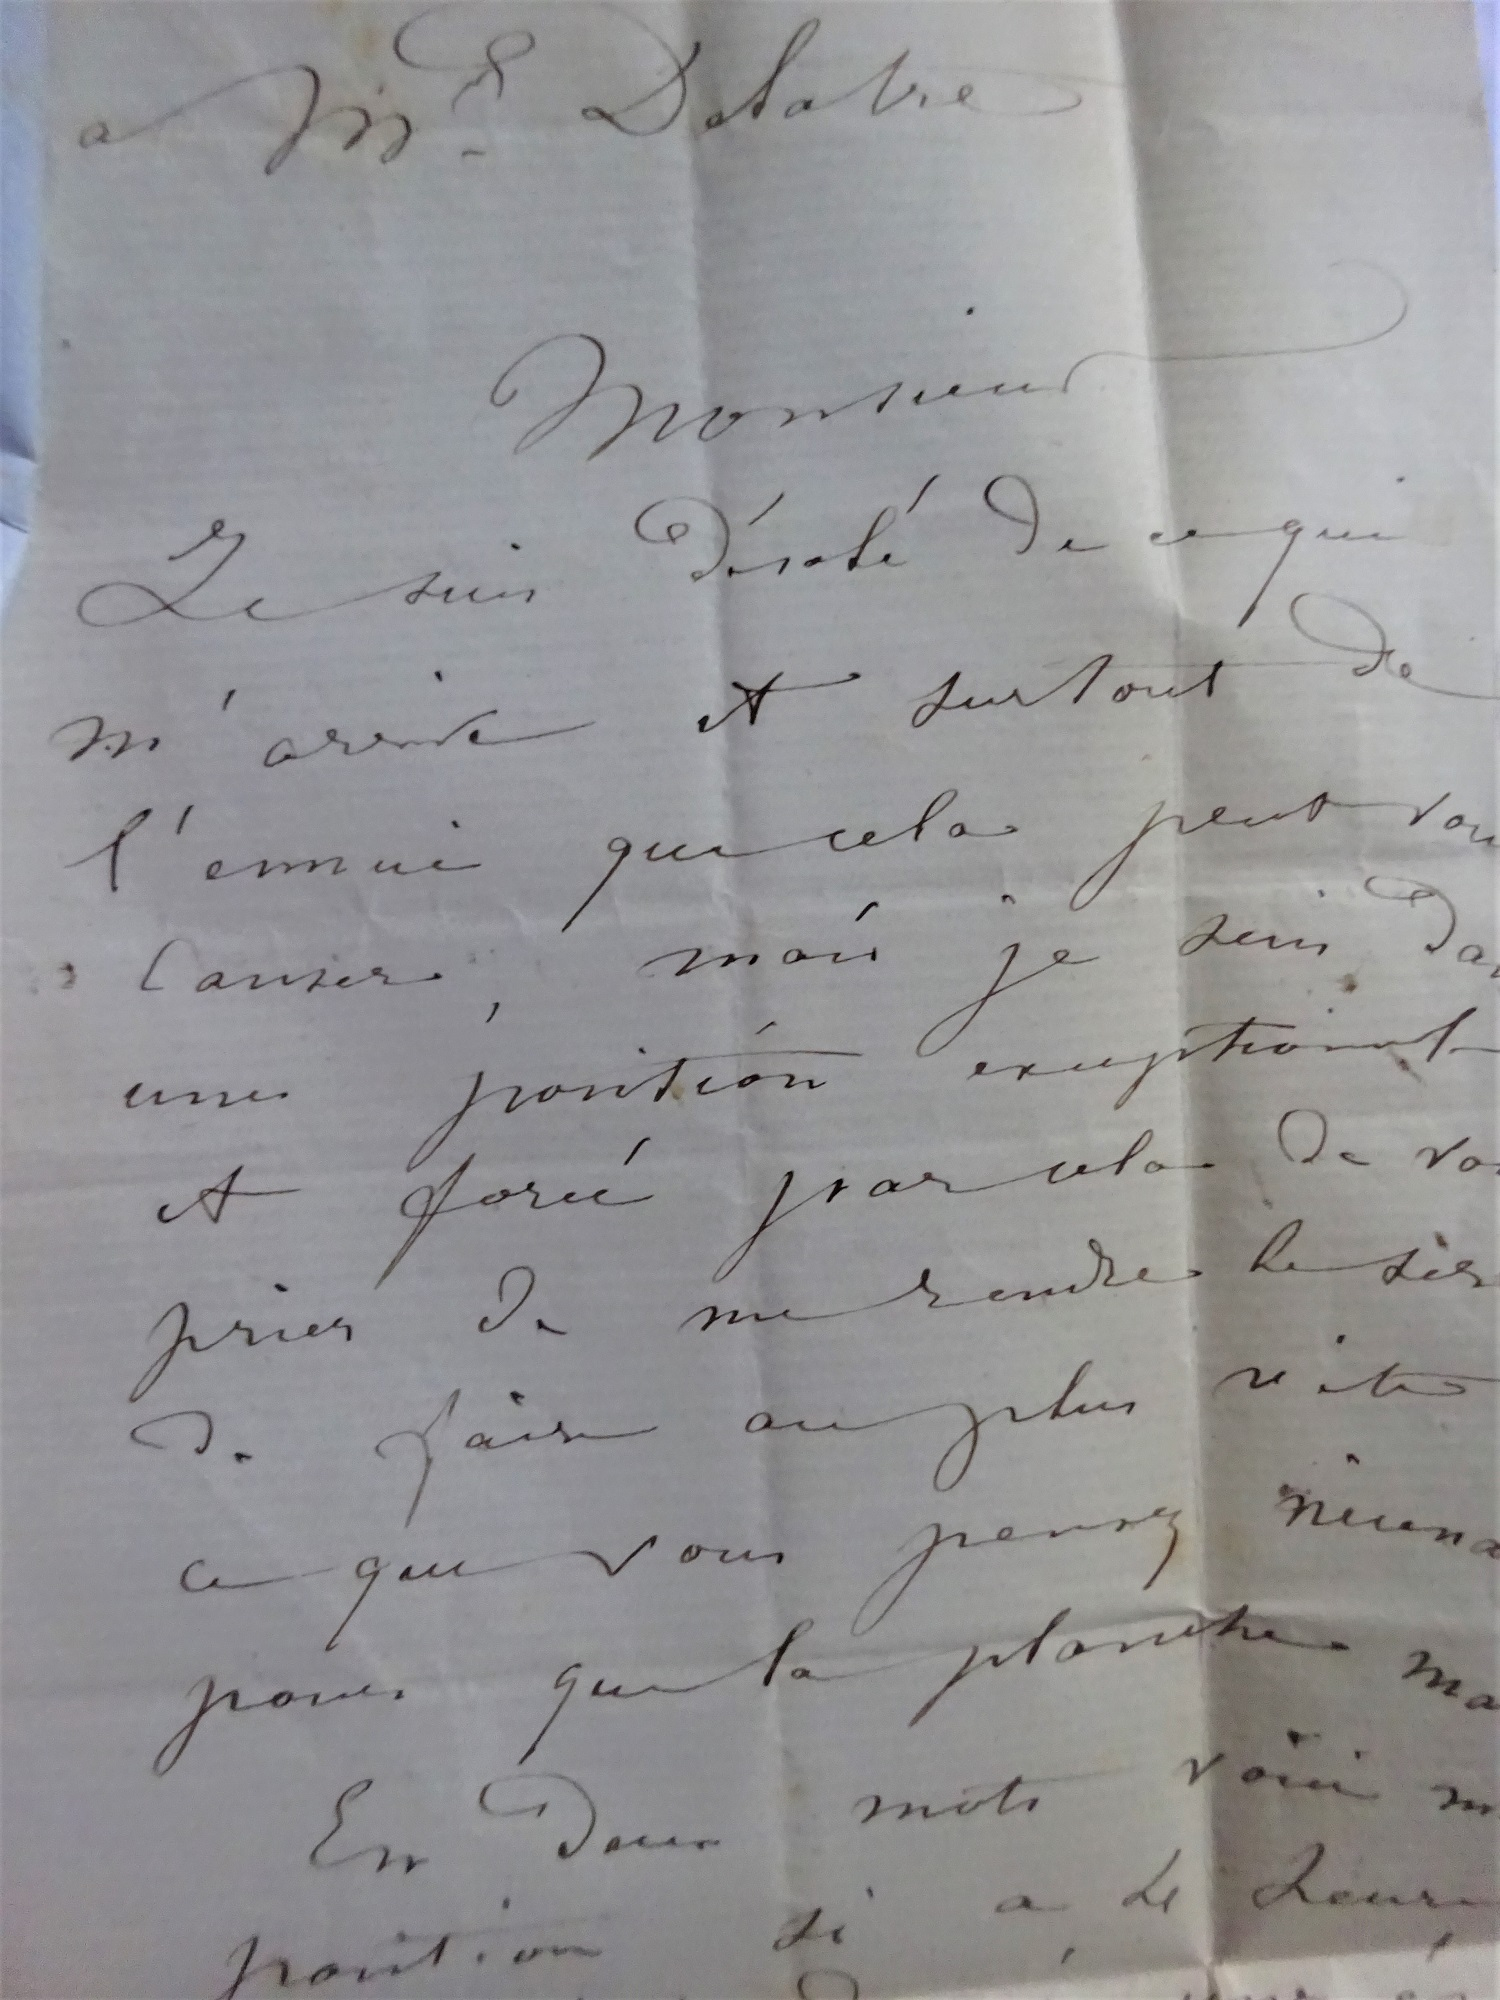 a Mr. Delatre
Monsieur
Je suis désolé de ce qui
m'arrive et surtout de
l'ennui que cela peut vou
Causer, mais je suis dan
une position exceptionel
et forcé par cela de vou
prier de me rendre le ser
de faire au plus vite
ce que vous pensez
pour que la planche ma
En deux mots voici m
position si a